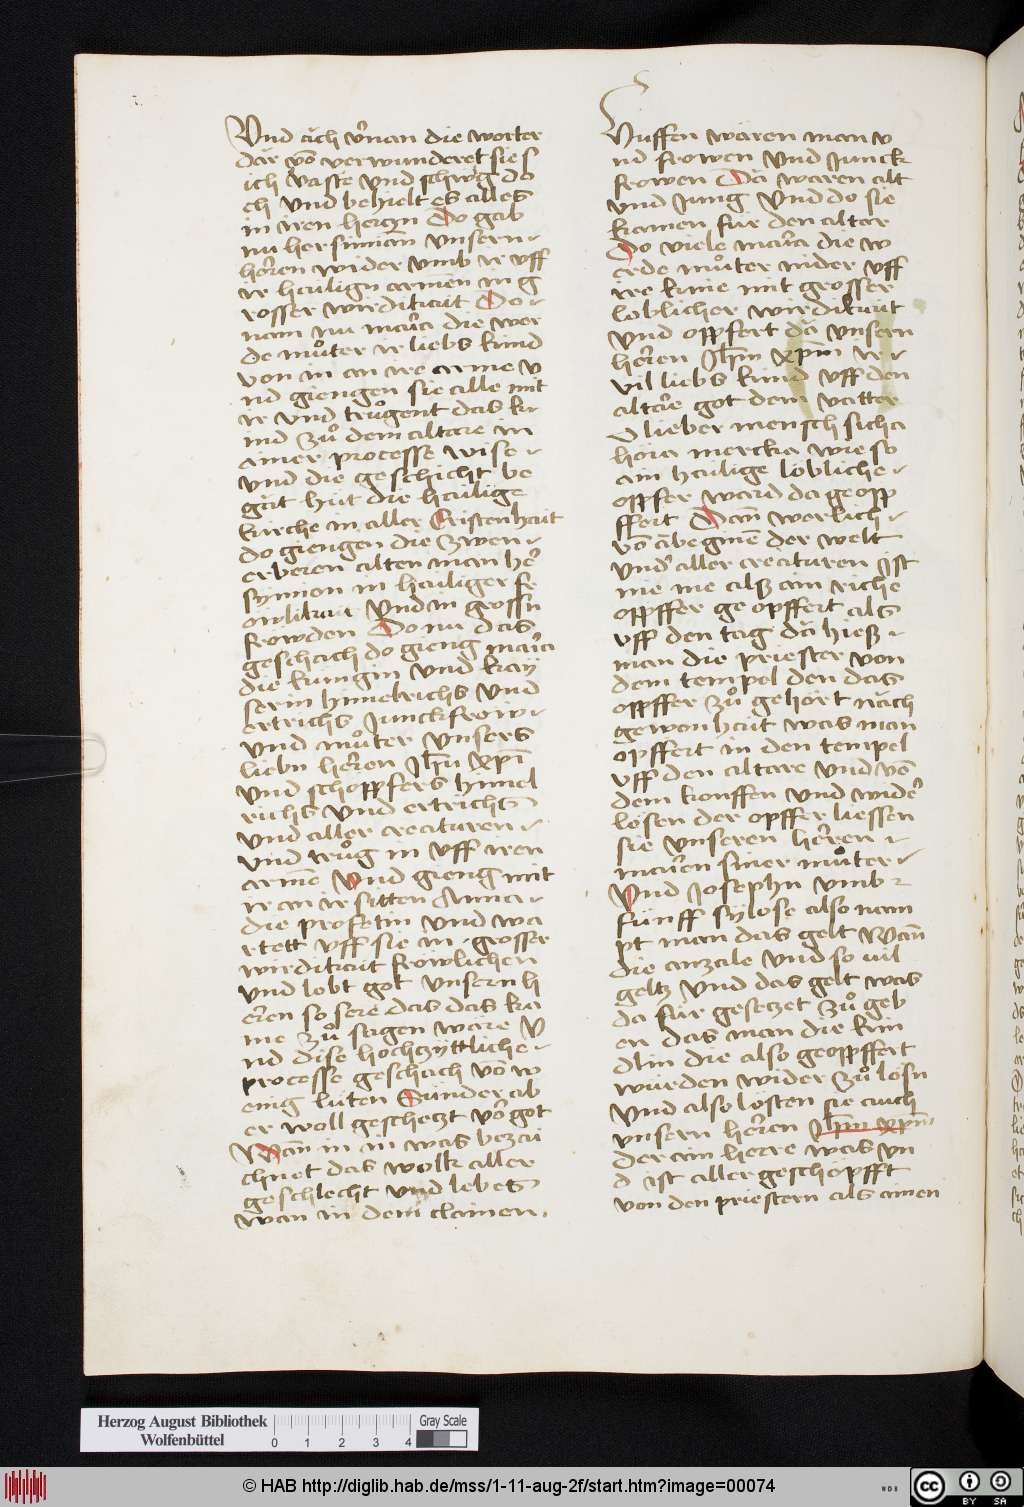 Vnd aůch v̓nan die worter
dar vō verwunderet sie s
ich vaste vnd schwig do
ch vnd behielt es alles
in iren herczn Do gab
nu her simian vnsern
hēren wider vmb ir vff
ir hailign armen in g
rosser wirdikait Do
nam nu maria die wer
de můter ir liebs kind
von im an ire arme v
nd giengen sie alle mit
ir vnd trůgent das ki
nd zů dem altare in
ainer processe wise
vnd die geschicht be
gāt hüt die hailige
kirche in aller Cristenhait
do giengen die zwen
erberen alten man her̄
symion in hailiger fr
ōwlikait Vnd in grossn
frōwden Do nu das
geschach do gieng maria
die kūngin vnd kay
serin himelrichs vnd
ertrichs Junckfrow
vnd můter vnsers
liebn herren Jhū xp̄i
vnd schöppfers himel
richs vnd ertrichs
vnd aller creaturen
vnd trůg in vff iren
arme Vnd gieng mit
ir an ir sitten Anna
die profetin vnd wa
rtett vff sie in grosser
wirdikait frowlichen
vnd lobt got vnsern h
eren so sere das das ka
me zů sagen ware V
nd dise hochzyttliche
processe geschach vō w
enig lüten Sunder ab
er woll geschetzt vor got
Wān in in was bezai
chnet das wolk aller
geschlecht vnd lebes
wan in dem clainen
Huffen wāren man v
nd frowen vnd Junck
frowen Da waren alt
vnd Jung Vnd do sie
kamen für den altar
Do viele maria die w
erde můter nider vff
ire knie mit grosser
loblicher wirdikait
vnd oppfert dā vnsern
herren Jhm̄ xpm̄ ir
vil liebs kind vff den
altāre got dem vatter
O lieber mensch sicha
höra mercka wie so
ain hailige löbliche
oppfer ward da geopp
ffert Dann werlich
vō anbeginē der welt
vnd aller creaturen Jst
nie me alsz ain riche
oppffer ge opffert als
vff den tag dā hiesz
man die priester von
dem tempel den das
oppffer zů gehört nāch
gewonhait was man
opffert in den tempel
vff den altare vnd vō
dem kouffen vnd wider̄
lösen der opffer liessen
sie vnseren herren
maren siner můter
Vnd Josephn vmb
fünff sylose also nam
pt man das gelt Wan̄
die anzale vnd so vil
geltz vnd das gelt was
da für gesetzet zů geb
en das man die kin
dlin die also geoppffert
wurden wider zů lösn
vnd also losten sie auch
vnsern herren Jhm̄ xpm̄
der ain herre was vn
d ist aller geschopfft
von den priestern als ainen
Herzog August Bibliothek
Wolfenbüttel
Gray Scale
0 1 2 3 4
© HAB http://diglib.hab.de/mss/1-11-aug-2f/start.htm?image=00074
WDB
cc BY SA